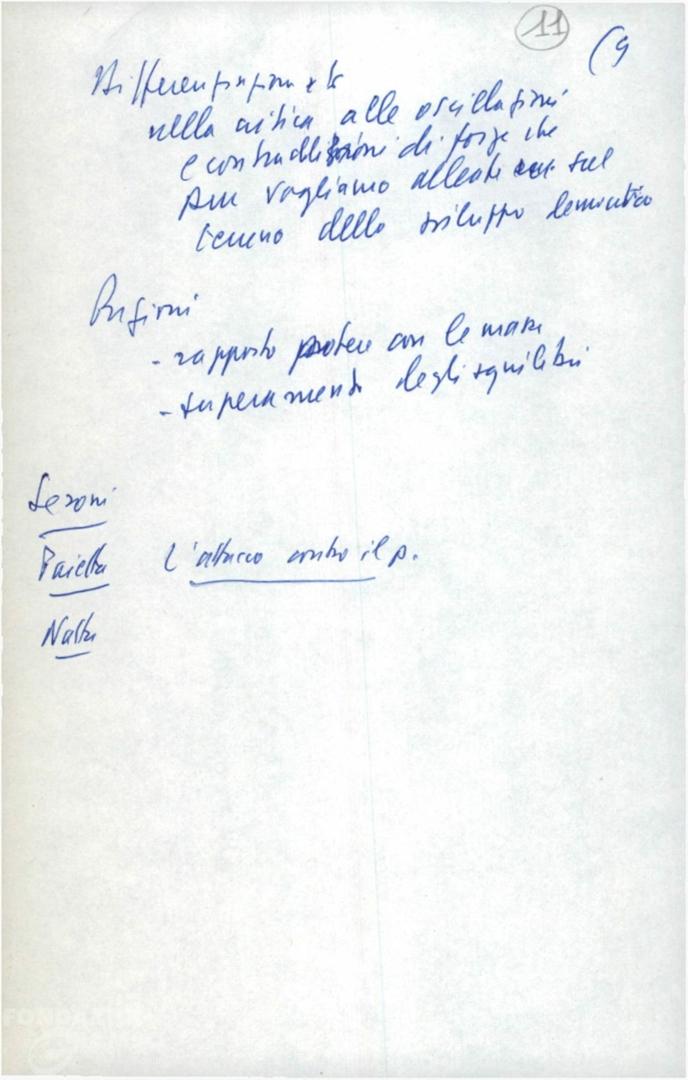 11
(9
nella critica alle oscillazioni
e contraddizioni di forze che
pur vogliamo alleate sul
terreno dello sviluppo democratico
Ragioni
- rapporto potere con le masse
- superamento degli squilibri
Seroni
Pajetta L'attacco contro il p.
Natta
FONDAZIONE